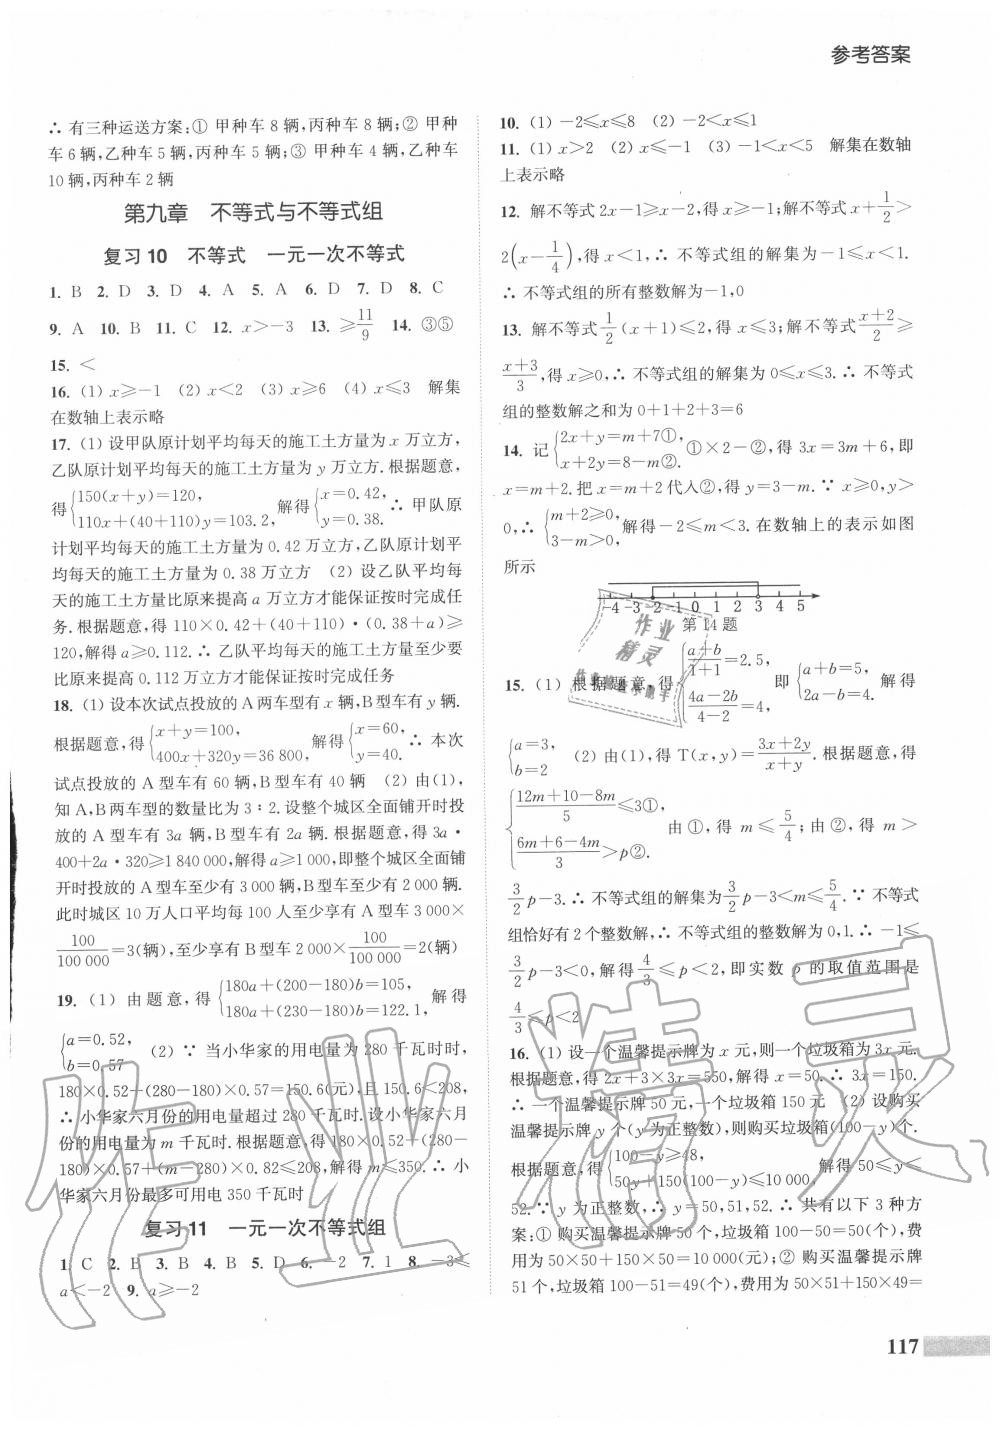 参考答案
∴ 有三种运送方案:① 甲种车 8 辆,丙种车 8 辆;② 甲种
车 6 辆,乙种车 5 辆,丙种车 5 辆;③ 甲种车 4 辆,乙种车
10 辆,丙种车 2 辆
第九章 不等式与不等式组
复习 10 不等式 一元一次不等式
1. B 2. D 3. D 4. A 5. A 6. D 7. D 8. C
9. A 10. B 11. C 12. x>-3 13. ≥11/9 14. ③⑤
15. <
16. (1) x≥-1 (2) x<2 (3) x≥6 (4) x≤3 解集
在数轴上表示略
17. (1) 设甲队原计划平均每天的施工土方量为 x 万立方,
乙队原计划平均每天的施工土方量为 y 万立方.根据题意,
得{150(x+y)=120, 110x+(40+110)y=103.2, 解得{x=0.42, y=0.38. ∴ 甲队原
计划平均每天的施工土方量为 0.42 万立方,乙队原计划平
均每天的施工土方量为 0.38 万立方 (2) 设乙队平均每
天的施工土方量比原来提高 a 万立方才能保证按时完成任
务.根据题意,得 110×0.42+(40+110)·(0.38+a)≥
120,解得 a≥0.112.∴ 乙队平均每天的施工土方量至少要
比原来提高 0.112 万立方才能保证按时完成任务
18. (1) 设本次试点投放的 A 型车有 x 辆,B 型车有 y 辆.
根据题意,得{x+y=100, 400x+320y=36 800, 解得{x=60, y=40. ∴ 本次
试点投放的 A 型车有 60 辆,B 型车有 40 辆 (2) 由(1),
知 A,B 两车型的数量比为 3∶2.设整个城区全面铺开时投
放的 A 型车有 3a 辆,B 型车有 2a 辆.根据题意,得 3a·
400+2a·320≥1 840 000,解得 a≥1 000,即整个城区全面铺
开时投放的 A 型车至少有 3 000 辆,B 型车至少有 2 000 辆.
此时城区 10 万人口平均每 100 人至少享有 A 型车 3 000×
100/100 000=3(辆),至少享有 B 型车 2 000×100/100 000=2(辆)
19. (1) 由题意,得{180a+(200-180)b=105, 180a+(230-180)b=122.1, 解得
{a=0.52, b=0.57 (2) ∵ 当小华家的用电量为 280 千瓦时时,
180×0.52+(280-180)×0.57=150.6(元),且 150.6<208,
∴ 小华家六月份的用电量超过 280 千瓦时.设小华家六月
份的用电量为 m 千瓦时.根据题意,得 180×0.52+(280-
180)×0.57+(m-280)×0.82≤208,解得 m≤350.∴ 小
华家六月份最多可用电 350 千瓦时
复习 11 一元一次不等式组
1. C 2. B 3. B 4. B 5. D 6. -2 7. 1 8. -3≤
a<-2 9. a≥-2
10. (1) -2≤x≤8 (2) -2<x≤1
11. (1) x>2 (2) x≤-1 (3) -1<x<5 解集在数轴
上表示略
12. 解不等式 2x-1≥x-2,得 x≥-1;解不等式 x+1/2>
2(x-1/4),得 x<1,∴ 不等式组的解集为-1≤x<1.
∴ 不等式组的所有整数解为-1,0
13. 解不等式1/2(x+1)≤2,得 x≤3;解不等式(x+2)/2≥
(x+3)/3,得 x≥0,∴ 不等式组的解集为 0≤x≤3.∴ 不等式
组的整数解之和为 0+1+2+3=6
14. 记{2x+y=m+7①, x+2y=8-m②. ①×2-②,得 3x=3m+6,即
x=m+2.把 x=m+2 代入②,得 y=3-m.∵ x≥0,y>
0,∴ {m+2≥0, 3-m>0, 解得-2≤m<3.在数轴上的表示如图
所示
-4 -3 -2 -1 0 1 2 3 4 5
第 14 题
15. (1) 根据题意,得{(a+b)/(1+1)=2.5, (4a-2b)/(4-2)=4, 即{a+b=5, 2a-b=4. 解得
{a=3, b=2 (2) 由(1),得 T(x,y)=(3x+2y)/(x+y).根据题意,得
{(12m+10-8m)/5≤3①, (6m+6-4m)/3>p②. 由①,得 m≤5/4;由②,得 m>
3/2p-3.∴ 不等式组的解集为3/2p-3<m≤5/4.∵ 不等式
组恰好有 2 个整数解,∴ 不等式组的整数解为 0,1.∴ -1≤
3/2p-3<0,解得4/3≤p<2,即实数 p 的取值范围是
4/3≤p<2
16. (1) 设一个温馨提示牌为 x 元,则一个垃圾箱为 3x 元.
根据题意,得 2x+3×3x=550,解得 x=50.∴ 3x=150.
∴ 一个温馨提示牌 50 元,一个垃圾箱 150 元 (2) 设购买
温馨提示牌 y 个(y 为正整数),则购买垃圾箱(100-y)个.
根据题意,得{100-y≥48, 50y+150(100-y)≤10 000, 解得 50≤y≤
52.∵ y 为正整数,∴ y=50,51,52.∴ 共有以下 3 种方
案:① 购买温馨提示牌 50 个,垃圾箱 100-50=50(个),费
用为 50×50+150×50=10 000(元);② 购买温馨提示牌
51 个,垃圾箱 100-51=49(个),费用为 50×51+150×49=
117
作业精灵